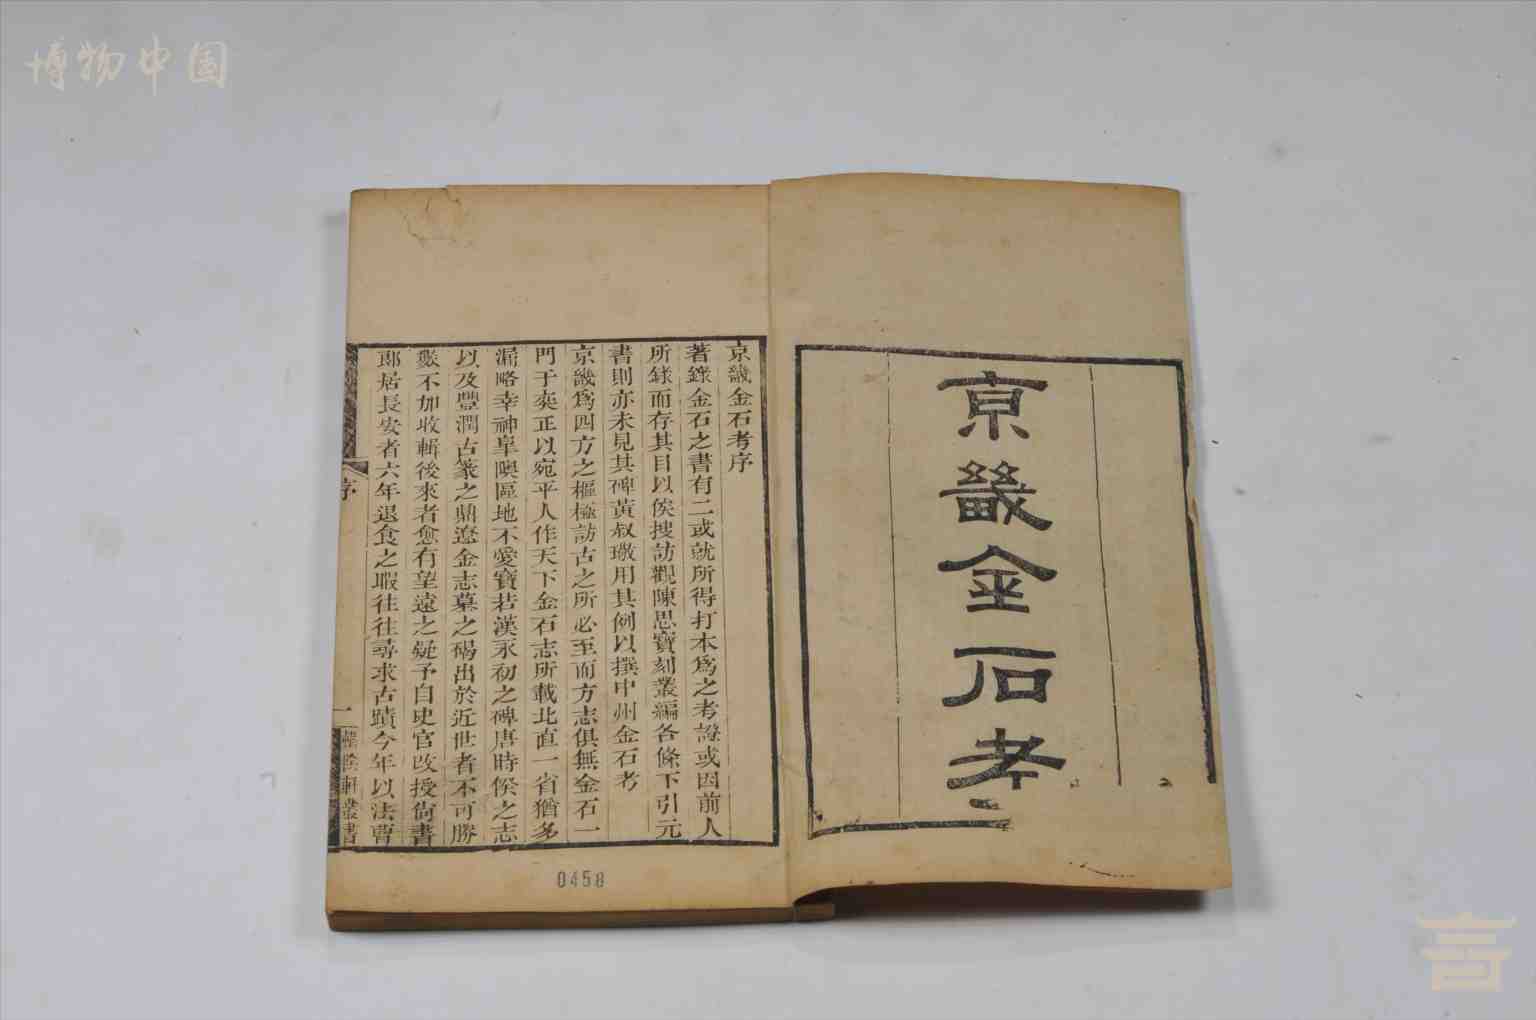 博物中国
京畿金石考
京畿金石考序
著錄金石之書有二或就所得打本爲之考證或因前人
所錄而存其目以俟搜訪觀陳思寶刻叢編各條下引元
書則亦未見其碑黃叔璥用其例以撰中州金石考
京畿爲四方之樞極訪古之所必至而方志俱無金石一
門于奕正以宛平人作天下金石志所載北直一省猶多
漏略幸神皐隩區地不愛寶若漢永初之碑唐時候之志
以及豐潤古篆之鼎遼金志墓之碣出於近世者不可勝
數不加收輯後來者愈有望遠之疑予自史官改授尙書
郎居長安者六年退食之暇往往尋求古蹟今年以法曹
序
一
叢書
0458